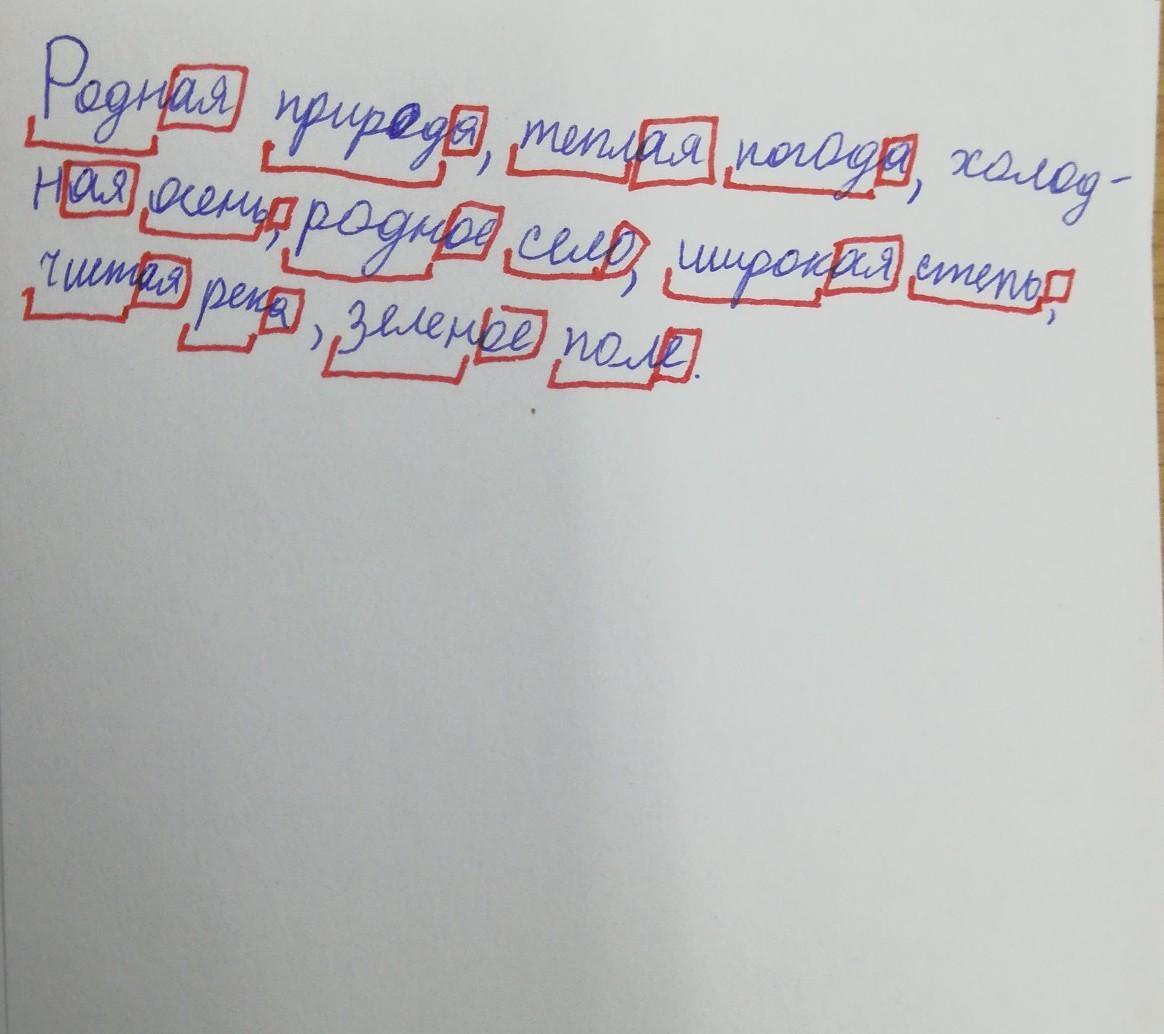 Родная природа, теплая погода, холод-
ная осень, родное село, широкая степь,
чистая река, зеленое поле.